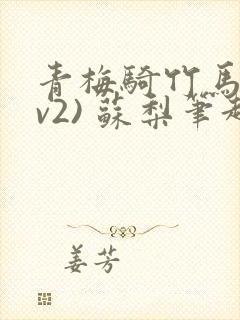 青梅騎竹馬
v2) 蘇梨筆趣
姜芳